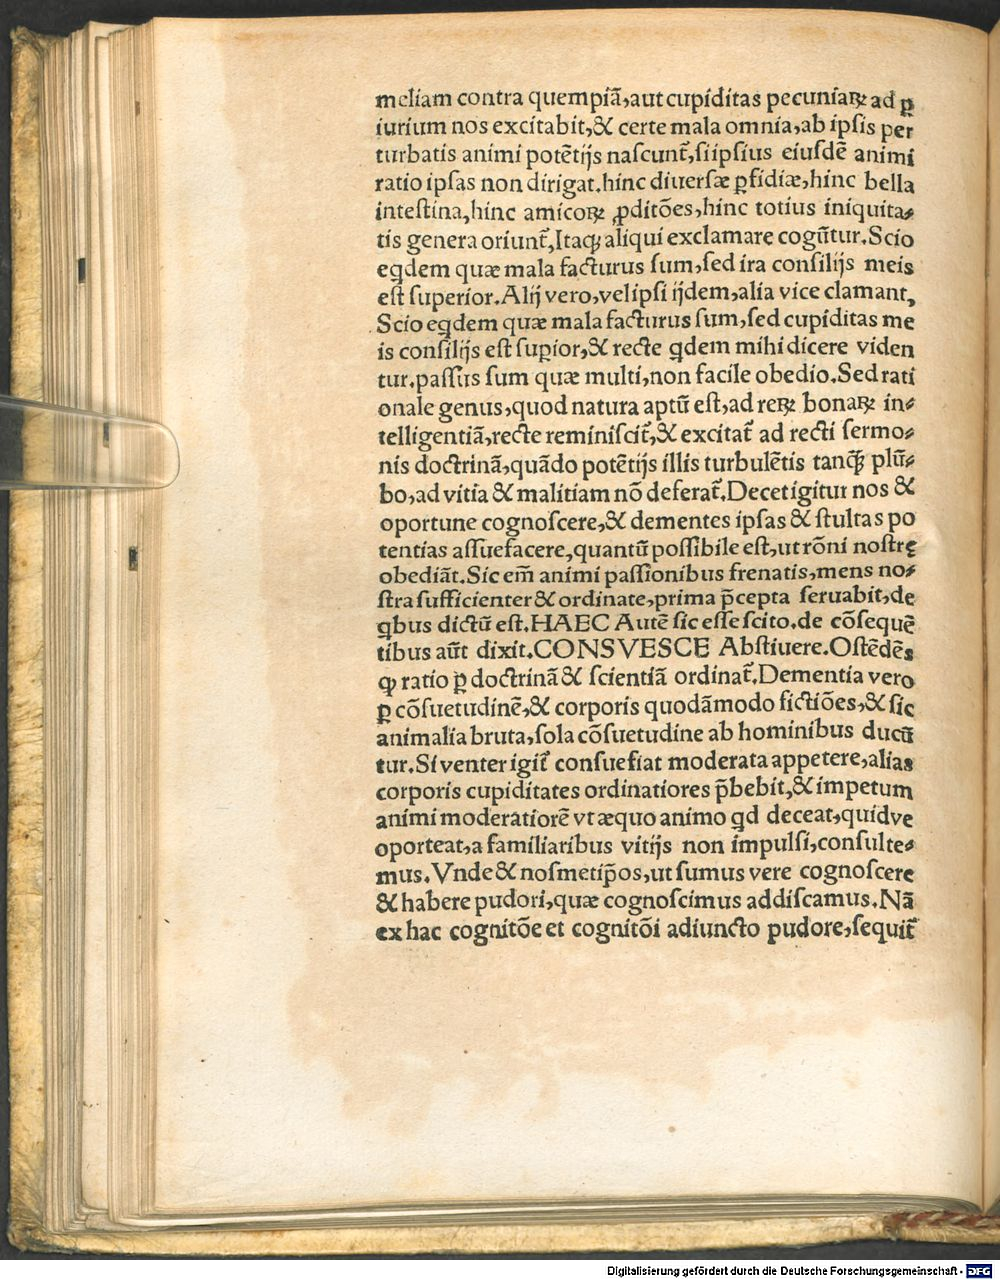 meliam contra quempiã,aut cupiditas pecuniaꝝ ad ꝑ
iurium nos excitabit,& certe mala omnia,ab ipsis per
turbatis animi potẽtijs nascunt᷑,si ipsius eiusdẽ animi
ratio ipsas non dirigat.hinc diuersæ ꝑfidiæ,hinc bella
intestina,hinc amicoꝝ ꝓditões,hinc totius iniquita⸗
tis genera oriunt᷑,Itaqꝫ aliqui exclamare cogũtur.Scio
eqdem quæ mala facturus sum,sed ira consilijs meis
est superior.Alij vero,vel ipsi ijdem,alia vice clamant,
Scio eqdem quæ mala facturus sum,sed cupiditas me
is consilijs est supior,& recte qdem mihi dicere viden
tur.passus sum quæ multi,non facile obedio.Sed rati
onale genus,quod natura aptũ est,ad reꝝ bonaꝝ in⸗
telligentiã,recte reminiscit᷑,& excitat᷑ ad recti sermo⸗
nis doctrinã,quãdo potẽtijs illis turbulẽtis tanꝗ̃ plũ⸗
bo,ad vitia & malitiam nõ deferat᷑.Decet igitur nos &
oportune cognoscere,& dementes ipsas & stultas po
tentias assuefacere,quantũ possibile est,ut rõni nostrę
obediãt.Sic em̃ animi passionibus frenatis,mens no⸗
stra sufficienter & ordinate,prima p̃cepta seruabit,de
qbus dictũ est.HAEC Autẽ sic esse scito.de cõsequẽ
tibus aũt dixit.CONSVESCE Abstiuere.Ostẽdẽs
ꝙ ratio ꝑ doctrinã & scientiã ordinat᷑.Dementia vero
ꝑ cõsuetudinẽ,& corporis quodãmodo fictiões,& sic
animalia bruta,sola cõsuetudine ab hominibus ducũ
tur.Si venter igit᷑ consuefiat moderata appetere,alias
corporis cupiditates ordinatiores p̃bebit,& impetum
animi moderatiorẽ vt æquo animo qd deceat,quidve
oporteat,a familiaribus vitijs non impulsi,consulte⸗
mus.Vnde & nosmetip̃os,ut sumus vere cognoscere
& habere pudori,quæ cognoscimus addiscamus.Nã
ex hac cognitõe et cognitõi adiuncto pudore,sequit᷑
Digitalisierung gefördert durch die Deutsche Forschungsgemeinschaft - DFG